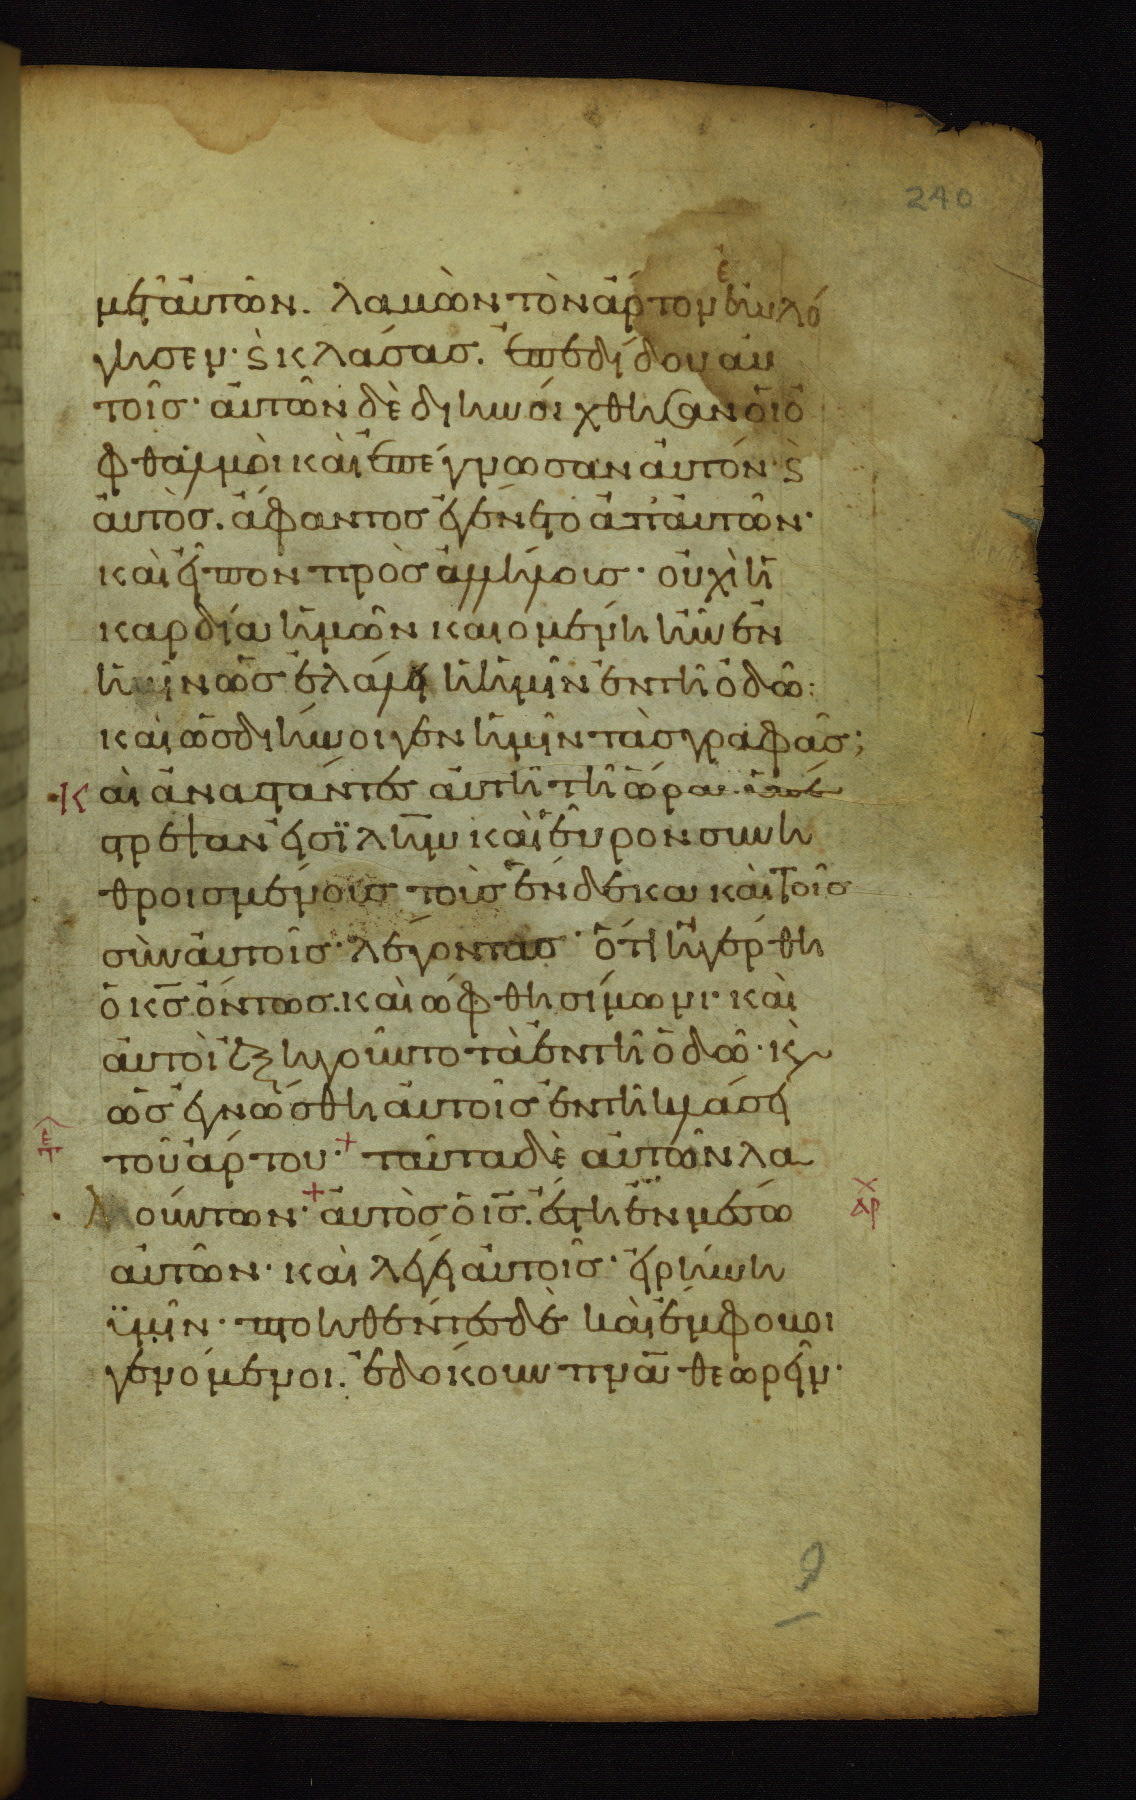 240
μετ αὐτῶν. λαβὼν τὸν ἄρτον εὐλό
γησεν· ϗ κλάσας. ἐπεδίδου αυ
τοῖς· αὐτῶν δὲ διηνοίχθησαν ὁι ὀ
φθαλμὸι κὰι ἐπέγνωσαν αυτόν· ϗ
ἀυτὸς. ἄφαντος ἐγένετο ἀπ' ἀυτῶν·
κὰι εἶπον πρὸς ἀλλήλους· οὐχὶ ἡ
καρδία ἡμῶν καιομένη ἦν ἐν
ἡμῖν ὡς ἐλάλει ἡμῖν ἐν τῆ ὁδῶ:
κὰι ὡς διήνοιγεν ἡμῖν τὰς γραφᾶς;
Κὰι ἀναστάντες ἀυτῆ τῆ ὥρα ὑπέ
στρεψαν εἰς ϊλὴμ κὰι εὗρον συνη
θροισμένους τοὺς ἕνδεκα κὰι τοῖς
σὺν ἀυτοῖς· λέγοντας· ὅτι ἠγέρθη
ὁ κς ὄντως. κὰι ὤφθη σίμωνι· κὰι
ἀυτὸι ἐξηγοῦντο τὰ ἐν τῆ ὁδῶ· κὰι
ὡς ἐγνώσθη ἀυτοῖς ἐν τῆ κλάσει
τοῦ ἄρτου·+ ταῦτα δὲ ἀυτῶν λα
λούντων·+ ἀυτὸς ὁ ις. ἔστη ἐν μέσω
ἀυτῶν· κὰι λέγει ἀυτοῖς· εἰρήνη
ϋμῖν· πτοηθέντες δὲ κὰι ἔμφοβοι
γενόμενοι. ἐδόκουν πνᾶ θεωρεῖν·
ΑΡ
9